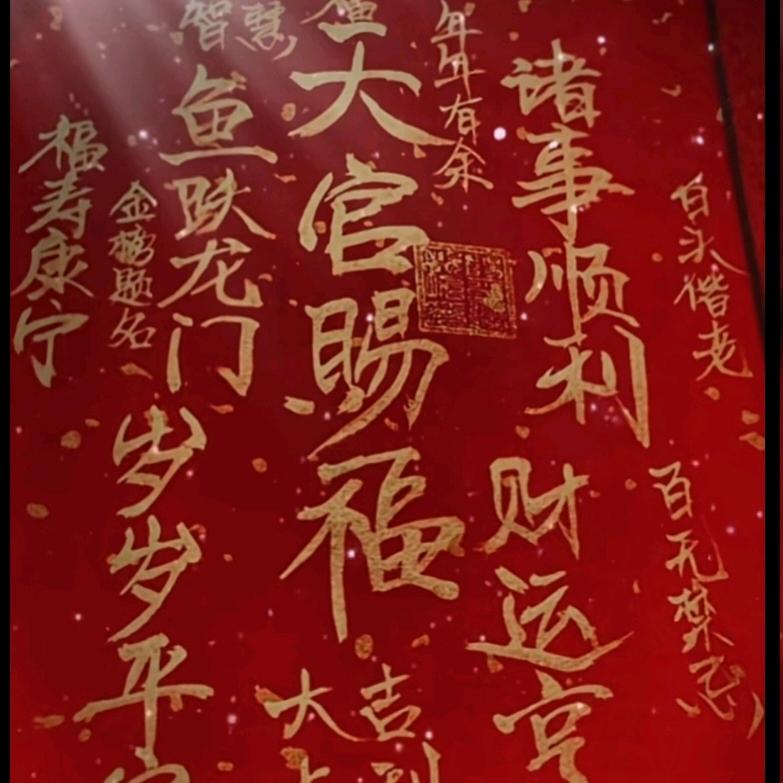 白头偕老
百无禁忌
诸事顺利
财运亨
年年有余
大官賜福
大吉
智慧
鱼跃龙门
岁岁平
金榜题名
福寿康宁